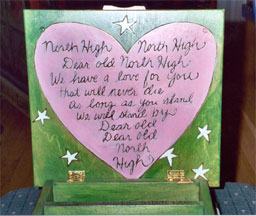 North High North High
Dear old North High
We have a love for you
that will never die
as long as you stand
We will stand by
Dear old
Dear Old
North
High